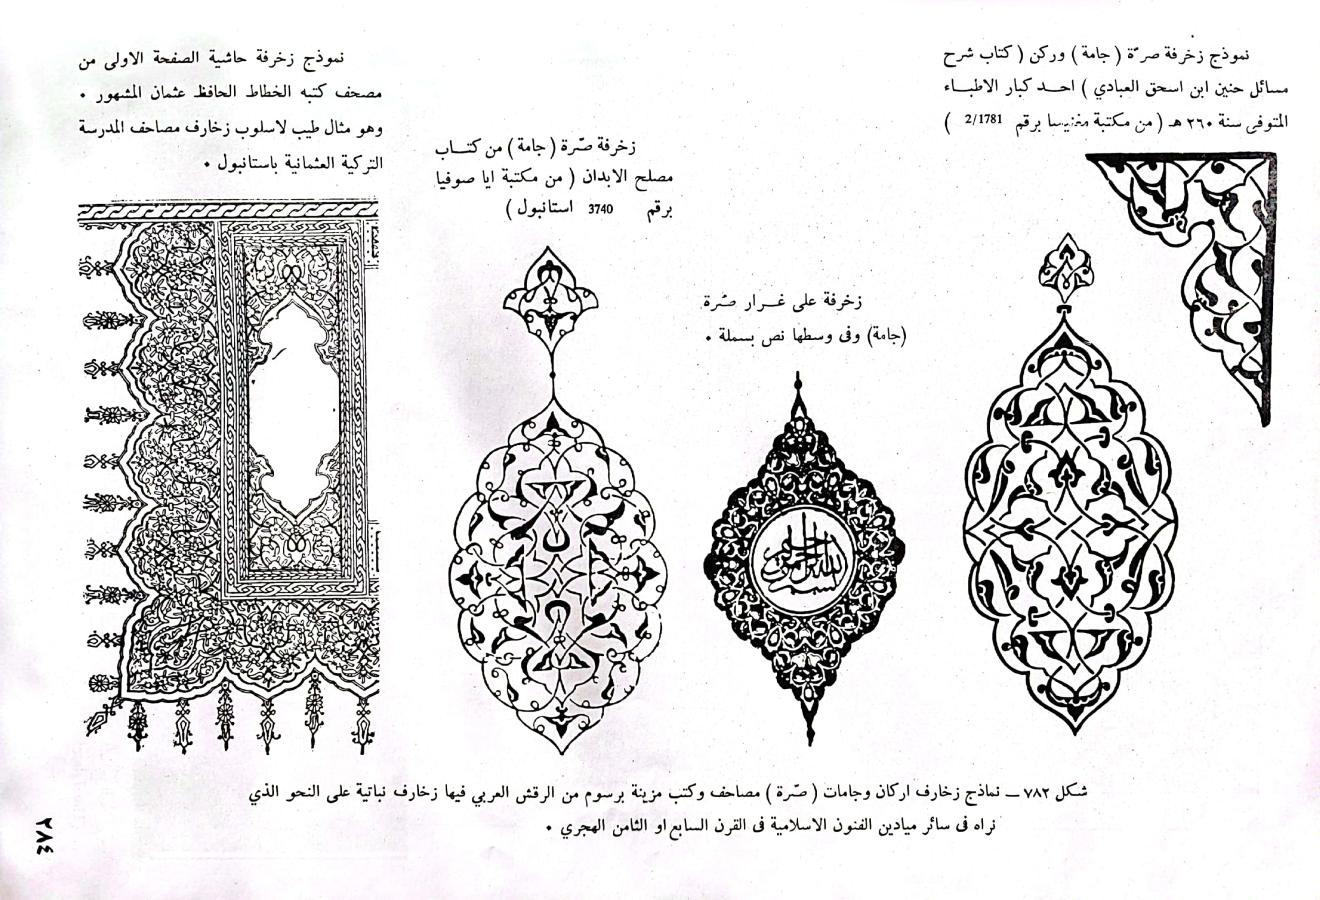 نموذج زخرفة صرّة ( جامة ) وركن ( كتاب شرح
مسائل حنين ابن اسحق العبادي ) احد كبار الاطباء
المتوفى سنة ٢٦٠ هـ ( من مكتبة مغنيسا برقم 2/1781 )
زخرفة على غرار صّرة
(جامة) وفى وسطها نص بسملة .
بسم الله الرحمن الرحيم
زخرفة صّرة ( جامة ) من كتاب
مصلح الابدان ( من مكتبة ايا صوفيا
برقم 3740 استانبول )
نموذج زخرفة حاشية الصفحة الاولى من
مصحف كتبه الخطاط الحافظ عثمان المشهور .
وهو مثال طيب لاسلوب زخارف مصاحف المدرسة
التركية العثمانية باستانبول .
شكل ٧٨٢ — نماذج زخارف اركان وجامات ( صّرة ) مصاحف وكتب مزينة برسوم من الرقش العربي فيها زخارف نباتية على النحو الذي
نراه فى سائر ميادين الفنون الاسلامية فى القرن السابع او الثامن الهجري .
٢٨٤